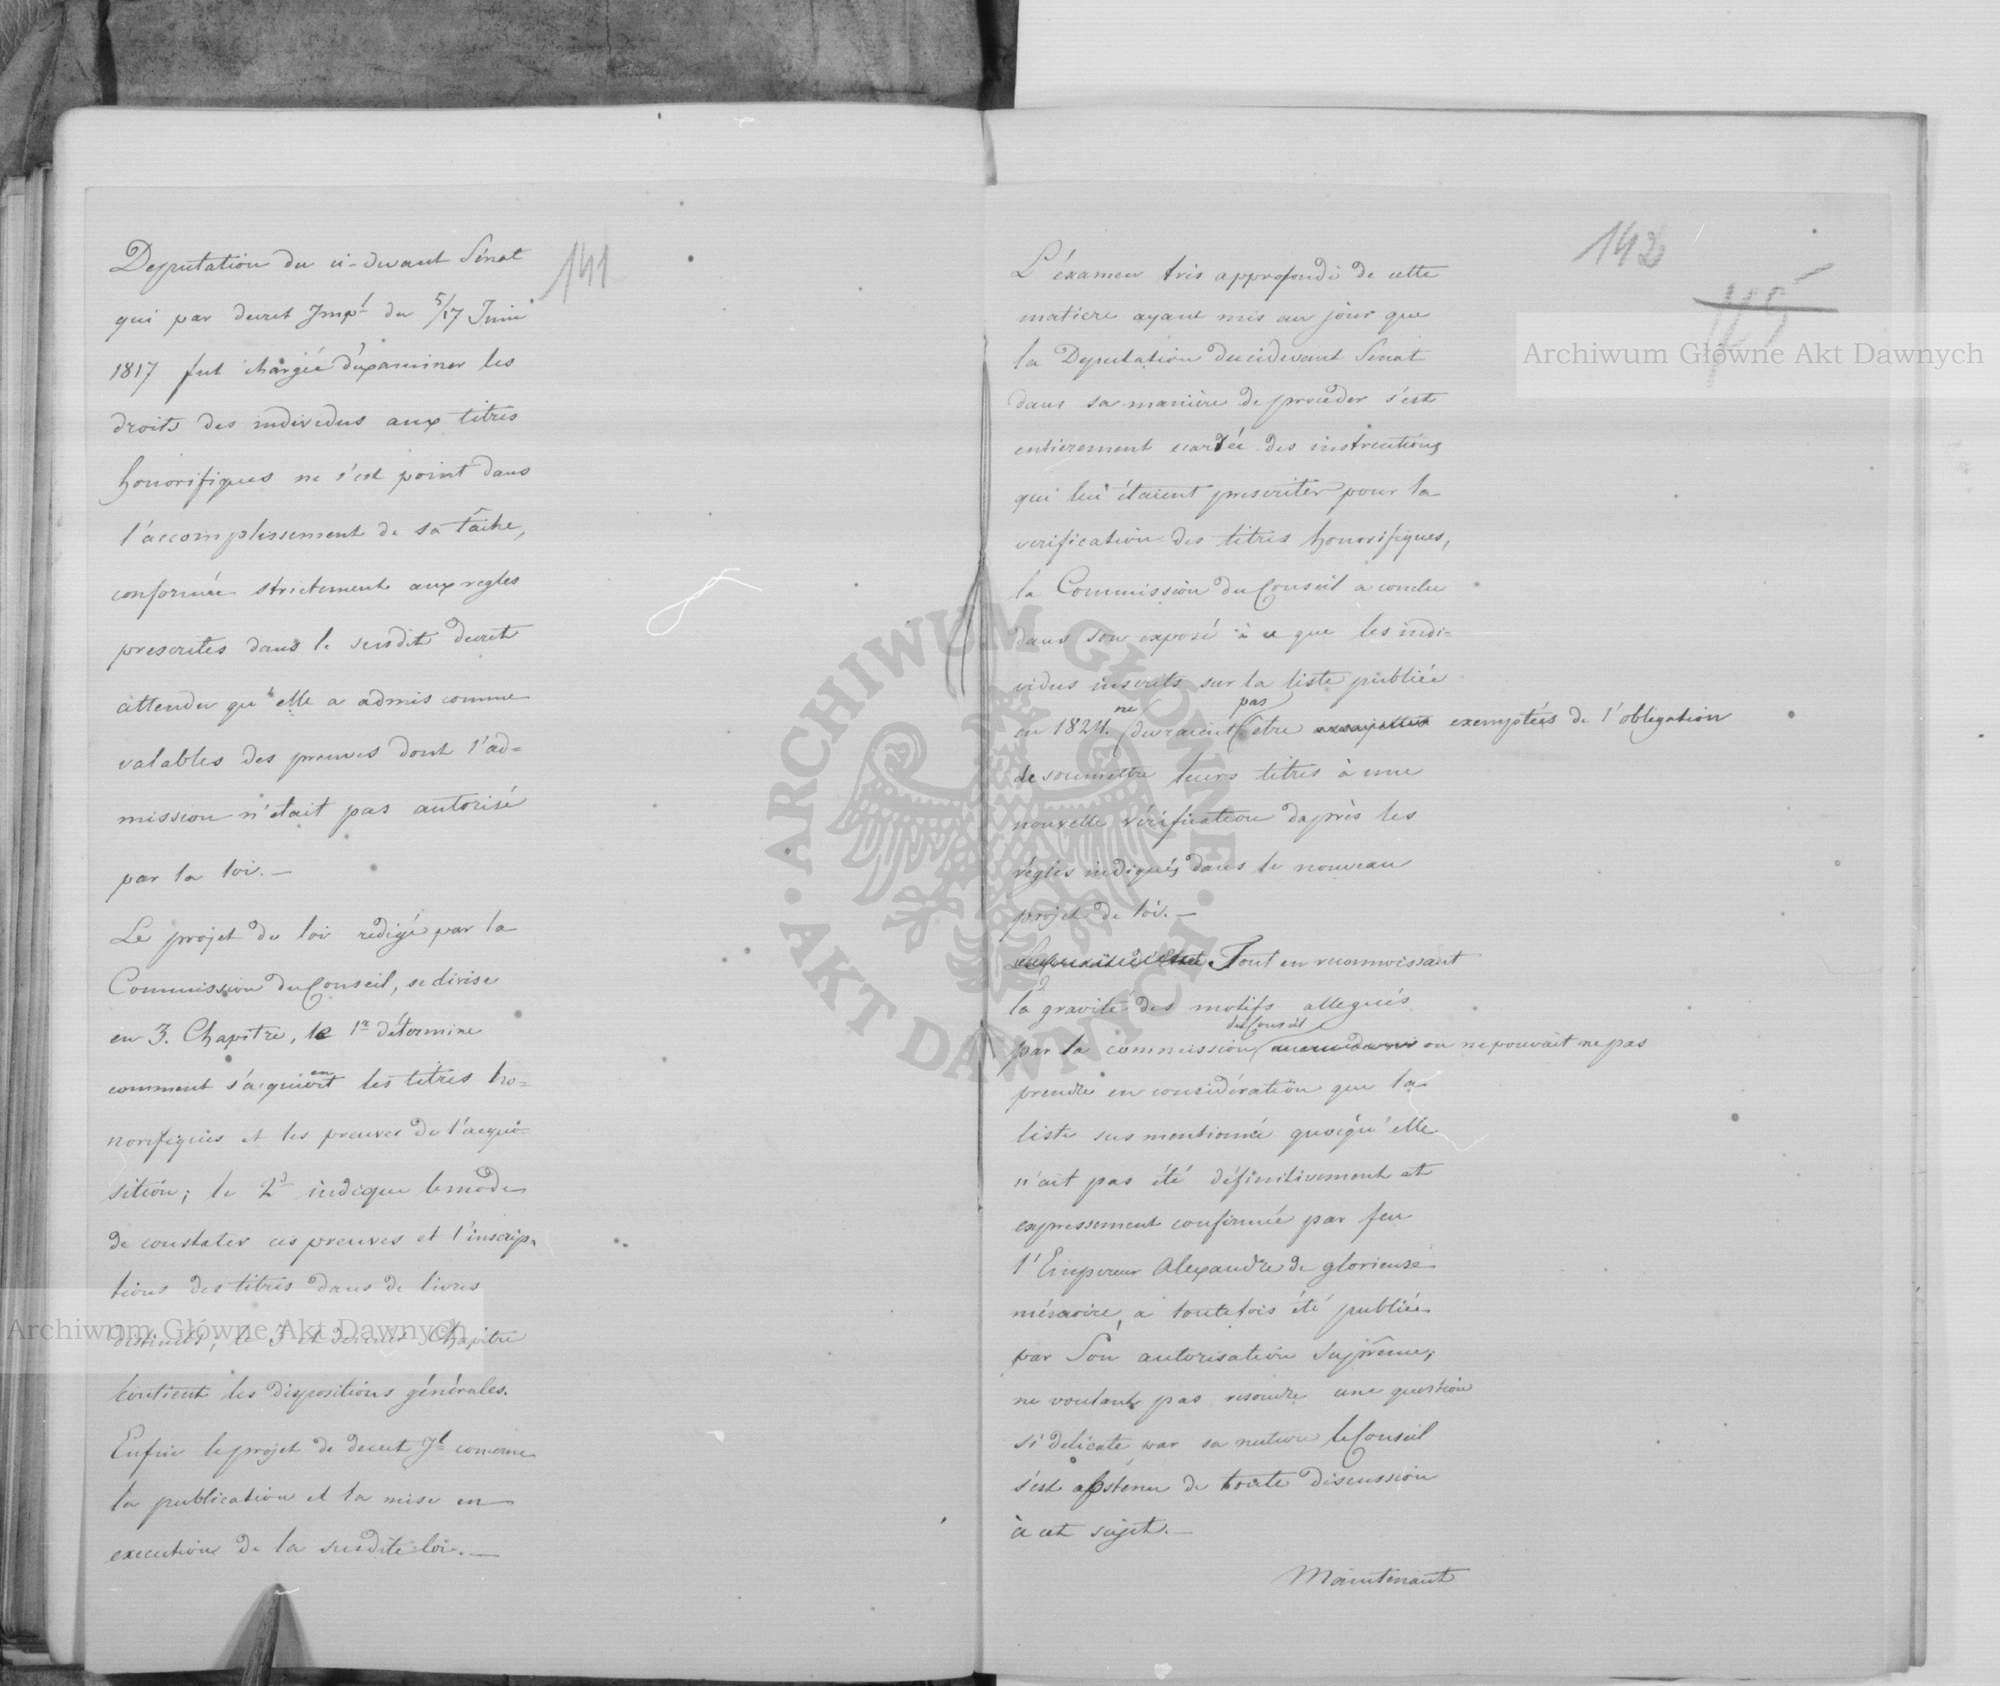 141
Deputation du ci-devant Sénat
qui par decret Imp.l du 5/17 Juin
1817 fut chargée d'éxaminer les
droits des individus aux titres
honorifiques ne s'est point dans
l'accomplissement de sa tâche,
conformée strictement aux regles
prescrites dans le susdit decret
attendu qu'elle a admis comme
valables des preuves dont l'ad=
mission n'était pas autorisé
par la loi. —
Le projet de loi redigé par la
Commission du Conseil, se divise
en 3. Chapitre, le 1r détermine
comment s'acquièrent les titres ho=
norifiques et les preuves de l'acqui=
sition; le 2d indique le mode
de constater ces preuves et l'inscrip=
tions des titres dans de livres
distincts; le 3 et dernier Chapitre
contient les dispositions générales.
Enfin le projet de decret Jl concerne
la publication et la mise en
execution de la susdite loi. —
142
125
L'éxamen très approfondi de cette
matiere ayant mis au jour que
la Deputation du cidevant Senat
dans sa manière de proceder s'est
entierement ecartée des instructions
qui lui étaient prescrites pour la
verification des titres honorifiques,
la Commission du Conseil a conclu
dans son exposé à ce que les indi=
vidus inscrits sur la liste publiée
en 1824. ne devraient pas être exemptés de l'obligation
de soumettre leurs titres à une
nouvelle vérification d'après les
régles indiqués dans le nouveau
projet de loi. —
Tout en reconnoissant
la gravité des motifs allegués
par la commission du Conseil on ne pouvait ne pas
prendre en considération que la
liste sus mentionnée quoiqu'elle
n'ait pas été définitivement et
expressement confirmée par feu
l'Empereur Alexandre de glorieuse
mémoire, a toutefois été publiée
par Son autorisation Suprême;
ne voulant pas resoudre une question
si delicate par sa nature le Conseil
s'est abstenu de toute discussion
à cet sujet. —
Maintenant
Archiwum Główne Akt Dawnych
Archiwum Główne Akt Dawnych
ARCHIWUM GŁÓWNE · AKT DAWNYCH ·